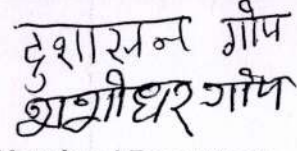 दुशासन गोप
यशोधर गोप